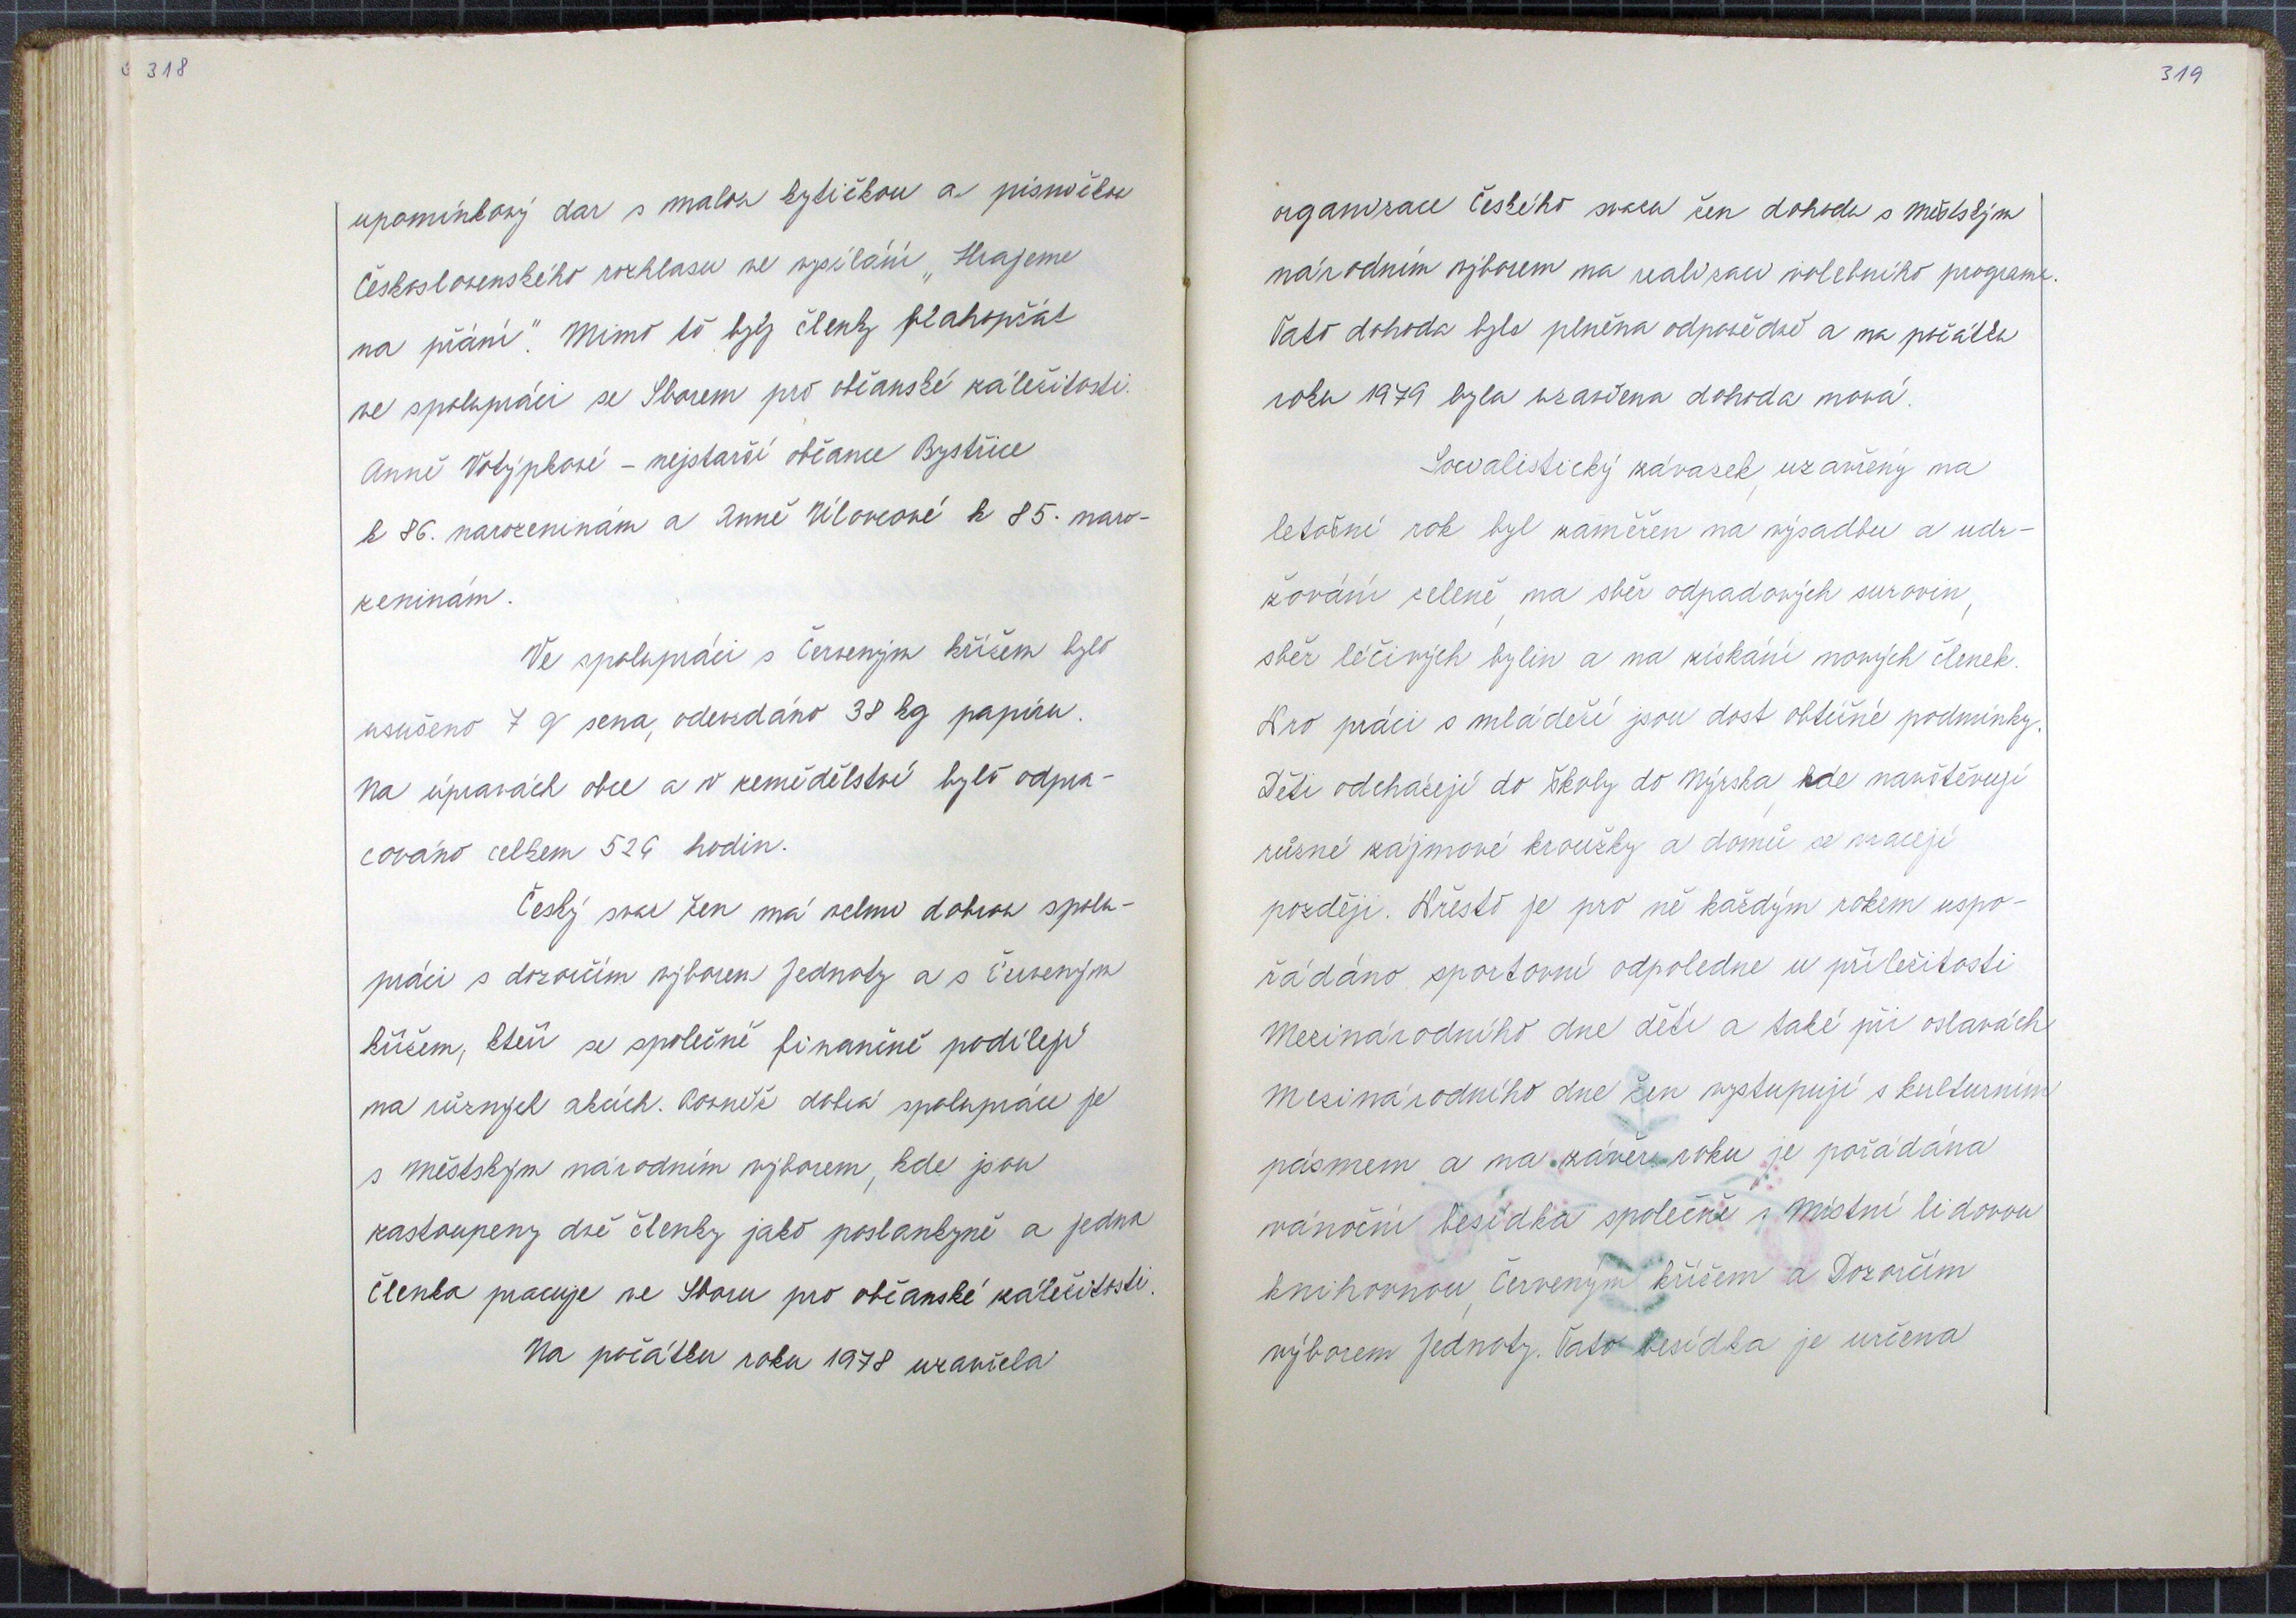 318
upomínkový dar s malou kytičkou a písničkou
Československého rozhlasu ve vysílání „Hrajeme
na přání". Mimo to byly členky blahopřát
ve spolupráci se Sborem pro občanské záležitosti.
Anně Votýpkové - nejstarší občance Bystřice
k 86. narozeninám a Anně Úlovcové k 85. naro-
zeninám.
Ve spolupráci s Červeným křížem bylo
usušeno 7 q sena, odevzdáno 38 kg papíru.
Na úpravách obce a v zemědělství bylo odpra-
cováno celkem 526 hodin.
Český svaz žen má velmi dobrou spolu-
práci s dozorčím výborem Jednoty a s Červeným
křížem, kteří se společně finančně podílejí
na různých akcích. Rovněž dobrá spolupráce je
s Městským národním výborem, kde jsou
zastoupeny dvě členky jako poslankyně a jedna
členka pracuje ve Sboru pro občanské záležitosti.
Na počátku roku 1978 uzavřela
319
organizace Českého svazu žen dohodu s Městským
národním výborem na realizaci volebního programu.
Tato dohoda byla plněna odpovědně a na počátku
roku 1979 byla uzavřena dohoda nová.
Socialistický závazek, uzavřený na
letošní rok byl zaměřen na výsadbu a udr-
žování zeleně, na sběr odpadových surovin,
sběr léčivých bylin a na získání nových členek.
Pro práci s mládeží jsou dost obtížné podmínky.
Děti odcházejí do školy do Nýrska, kde navštěvují
různé zájmové kroužky a domů se vracejí
později. Přesto je pro ně každým rokem uspo-
řádáno sportovní odpoledne u příležitosti
Mezinárodního dne dětí a také při oslavách
Mezinárodního dne žen vystupují s kulturním
pásmem a na závěr roku je pořádána
vánoční besídka společně s Místní lidovou
knihovnou, Červeným křížem a Dozorčím
výborem Jednoty. Tato besídka je určena